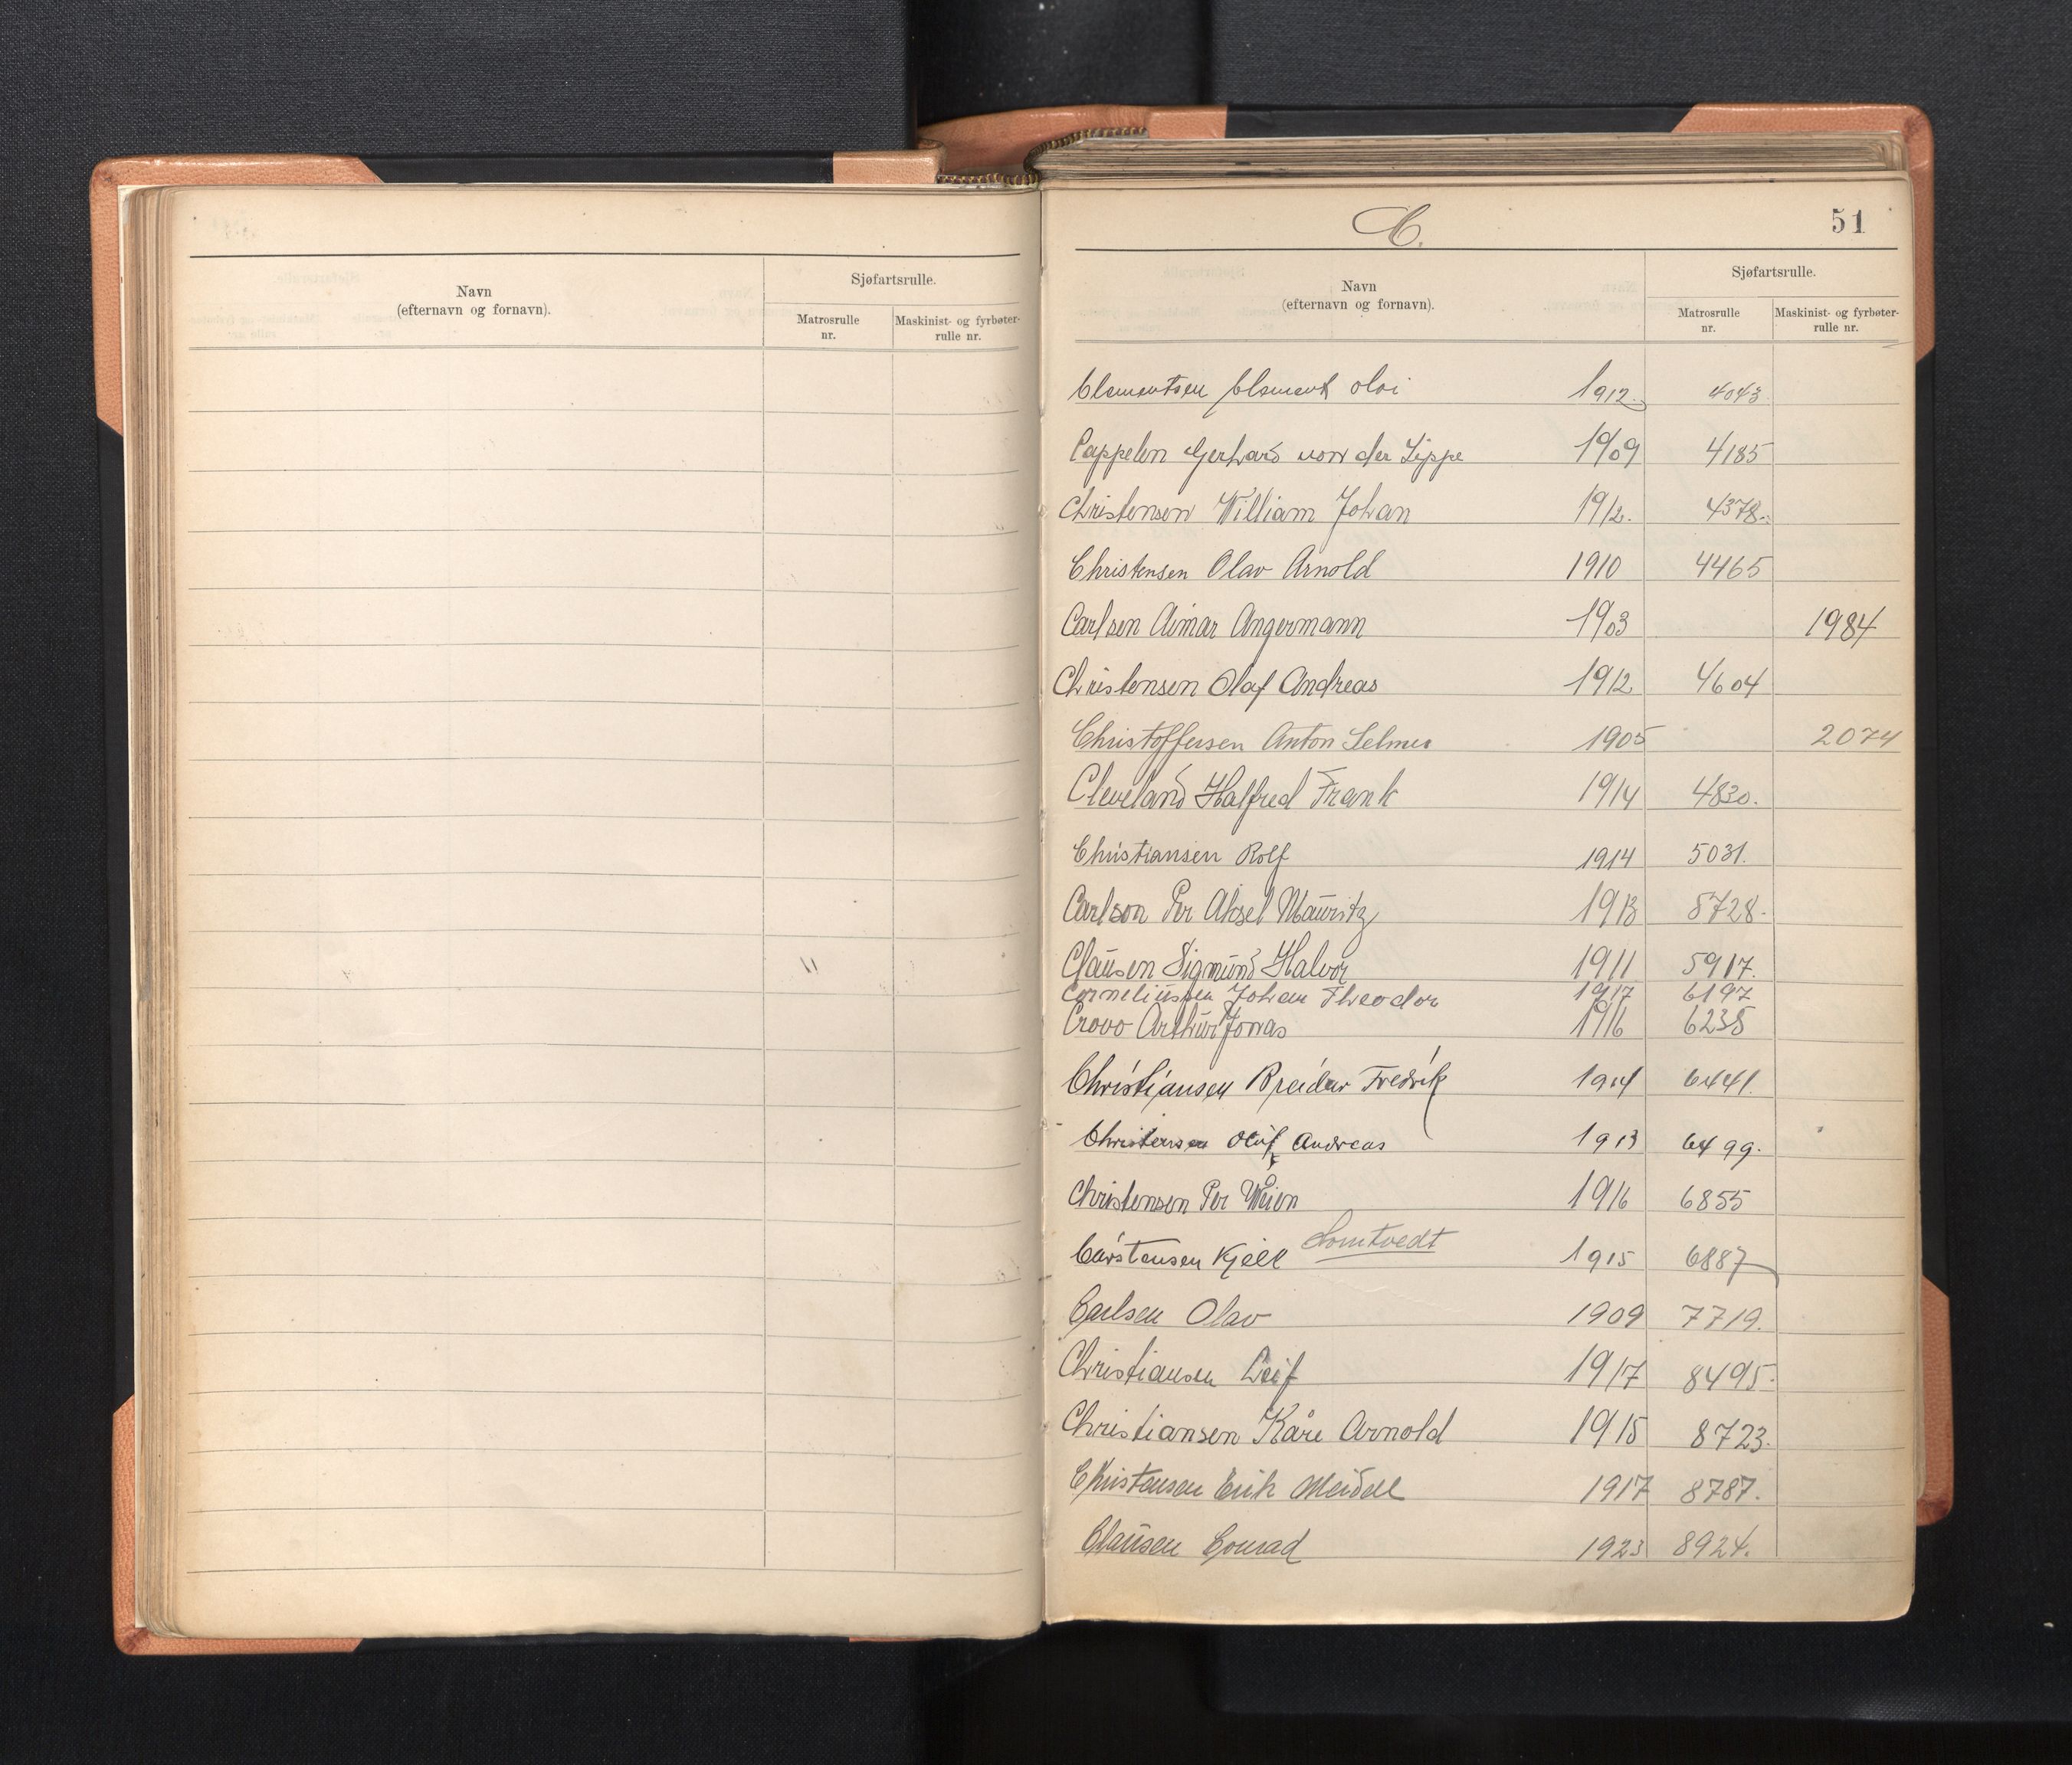 Navn
(efternavn og fornavn).
Sjøfartsrulle.
Matrosrulle
nr.
Maskinist- og fyrbøter-
rulle nr.
C.
51
Navn
(efternavn og fornavn).
Sjøfartsrulle.
Matrosrulle
nr.
Maskinist- og fyrbøter-
rulle nr.
Clementsen Clement Olai 1912. 4043
Cappelen Gerhard von der Lippe 1909 4185
Christensen William Johan 1912. 4378.
Christensen Olav Arnold 1910 4465
Carlsen Aimar Angermann 1903 1984
Christensen Olaf Andreas 1912 4604
Christoffersen Anton Selmer 1905 2074
Cleveland Halfred Frank 1914 4830.
Christiansen Rolf 1914 5031.
Carlson Per Aksel Mauritz 1913 5728.
Clausen Sigmund Halvor 1911 5917.
Corneliussen Johan Theodor 1917 6197
Crovo Arthur Jonas 1916 6235
Christiansen Breidar Fredrik 1914 6441.
Christensen Oluf Andreas 1913 6499.
Christensen Per Weien 1916 6855
Carstensen Kjell Somtvedt 1915 6887
Carlsen Olav 1909 7719.
Christiansen Leif 1917 8495.
Christiansen Kåre Arnold 1915 8723.
Christensen Erik Meidell 1917 8787.
Clausen Conrad 1923 8924.